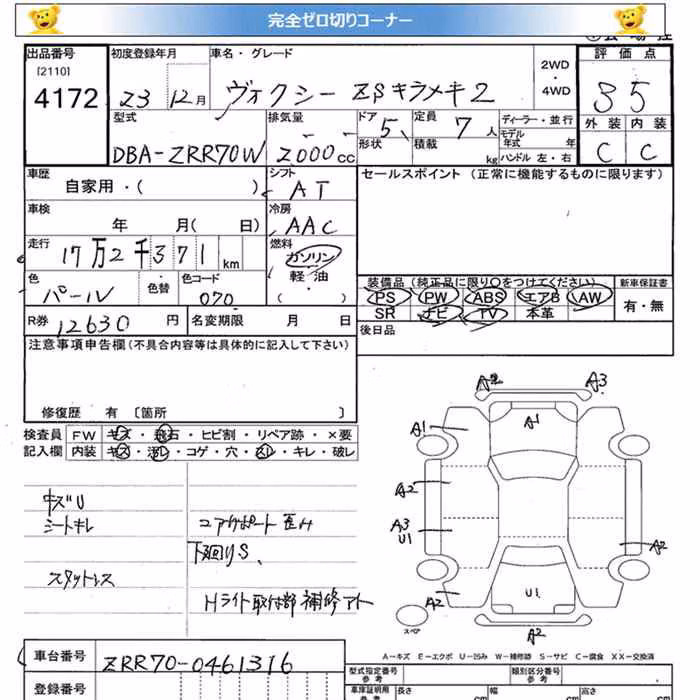 完全ゼロ切りコーナー
出品番号
[2110]
4172
初度登録年月
23 12月
車名・グレード
ヴォクシー ZSキラメキ2
2WD
・
4WD
評価点
35
外装 内装
C C
型式
DBA-ZRR70W
排気量
2000cc
ドア 5
形状
定員 7人
積載 kg
ディーラー・並行
モデル
年式 年
ハンドル 左・右
車歴
自家用・( )
シフト
AT
セールスポイント (正常に機能するものに限ります)
車検
年 月( 日)
冷房
AAC
走行
17万2千371km
燃料
ガソリン
軽・油
( )
色
パール
・
色替
色コード
070
装備品 (純正品に限り○をつけてください)
新車保証書
PS PW ABS エアB AW
SR ナビ TV 本革
有・無
R券 12630 円
名変期限 月 日
後日品
注意事項申告欄(不具合内容等は具体的に記入して下さい)
修復歴 有 〔箇所 〕
検査員
記入欄
FW キズ・飛石・ヒビ割・リペア跡・×要
内装 キズ・汚レ・コゲ・穴・スレ・キレ・破レ
キズU
シートキレ
スタットレス
コアサポート歪H
下廻りS、
Hライト取付部補修アト
A2 A3
A1 A1
A2
A3
U1
A2
A2 U1
A2
スペア
A-キズ E-エクボ U-凹み W-補修跡 S-サビ C-腐食 XX-交換済
車台番号
ZRR70-0461316
登録番号
型式指定番号
参考
類別区分番号
参考
車庫証明用
参考
長さ cm
幅 cm
高さ cm